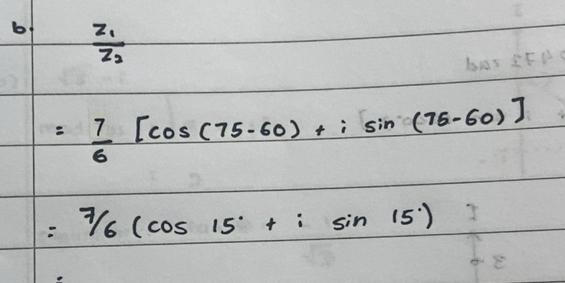 b. z₁/z₂
= 7/6 [cos (75-60) + i sin (75-60)]
= 7/6 (cos 15° + i sin 15°)